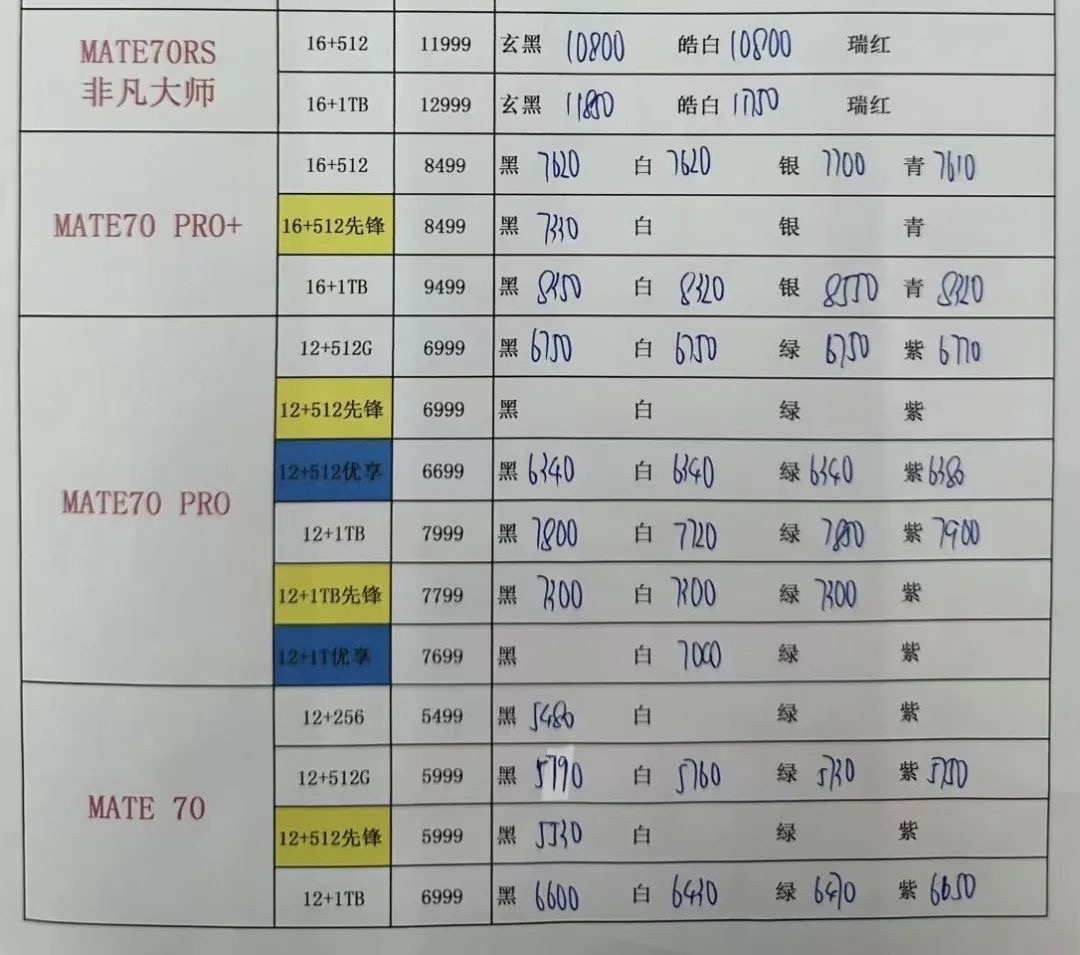 MATE70RS
非凡大师
16+512 11999 玄黑 10800 皓白 10800 瑞红
16+1TB 12999 玄黑 11850 皓白 11750 瑞红
MATE70 PRO+
16+512 8499 黑 7620 白 7620 银 7700 青 7610
16+512先锋 8499 黑 7330 白 银 青
16+1TB 9499 黑 8350 白 8320 银 8550 青 8320
MATE70 PRO
12+512G 6999 黑 6750 白 6750 绿 6750 紫 6770
12+512先锋 6999 黑 白 绿 紫
12+512优享 6699 黑 6340 白 6340 绿 6340 紫 6380
12+1TB 7999 黑 7800 白 7720 绿 7850 紫 7900
12+1TB先锋 7799 黑 7300 白 7300 绿 7300 紫
12+1T优享 7699 黑 白 7000 绿 紫
MATE 70
12+256 5499 黑 5480 白 绿 紫
12+512G 5999 黑 5790 白 5760 绿 5730 紫 5750
12+512先锋 5999 黑 5530 白 绿 紫
12+1TB 6999 黑 6600 白 6430 绿 6470 紫 6650